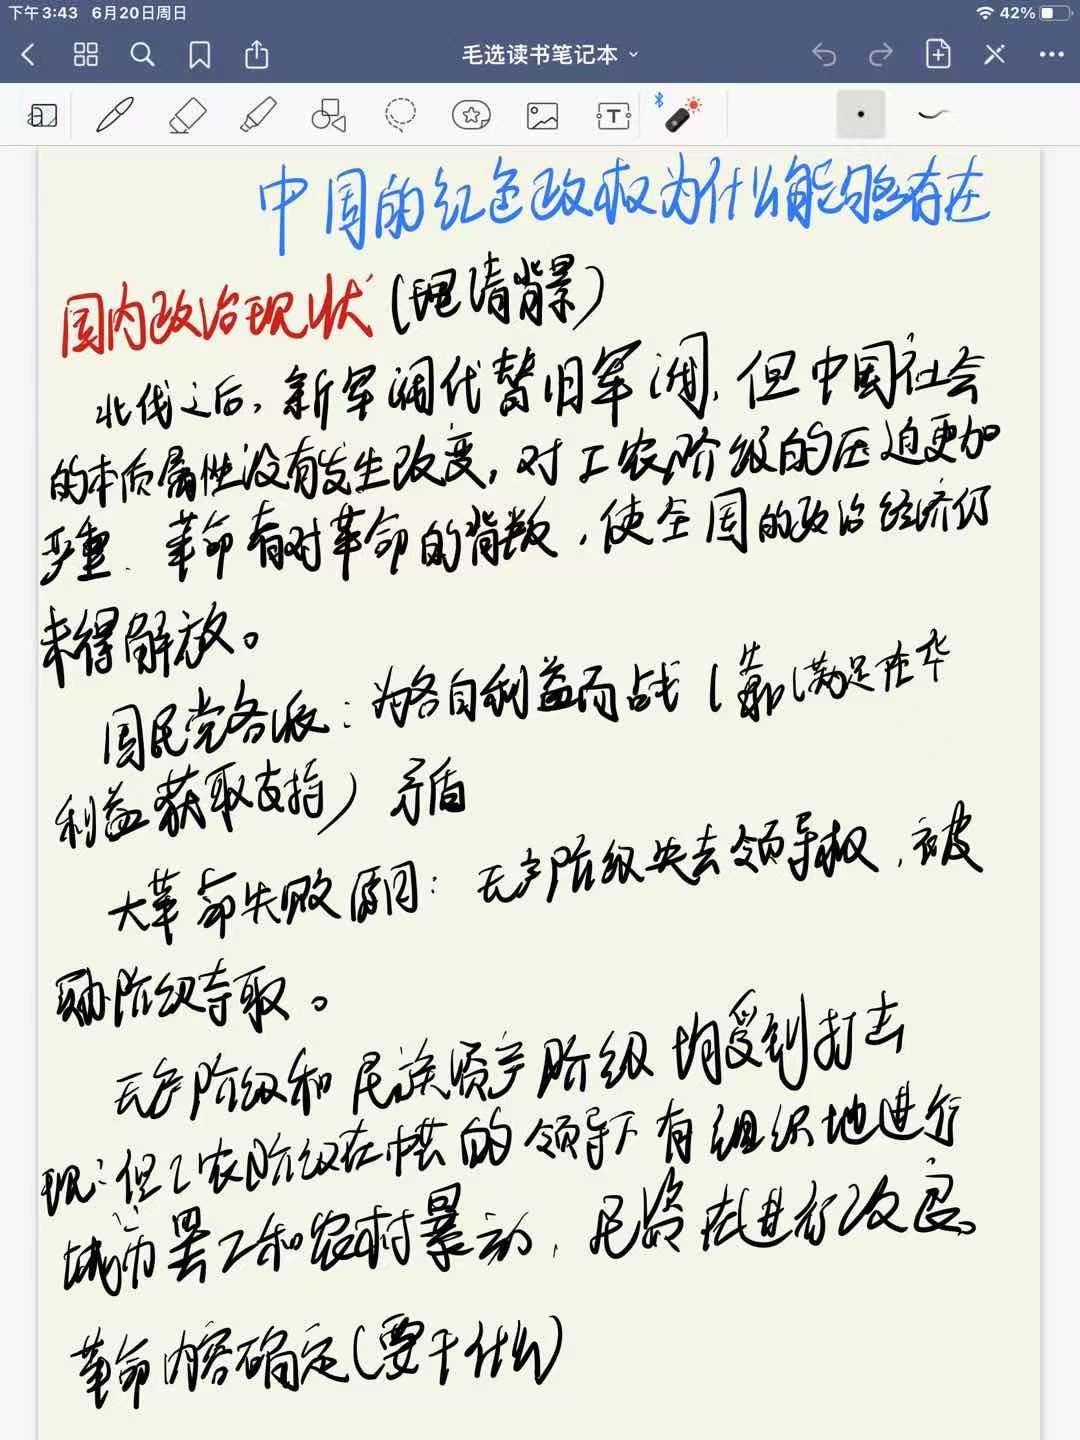 下午3:43 6月20日周日
42%
毛选读书笔记本
中国的红色政权为什么能够存在
国内政治现状(理清背景)
北伐之后,新军阀代替旧军阀,但中国社会
的本质属性没有发生改变,对工农阶级的压迫更加
严重.革命有对革命的背叛,使全国的政治经济仍
未得解放。
国民党各派:为各自利益而战(靠满足在华
利益获取支持)矛盾
大革命失败原因:无产阶级失去领导权,被
买办阶级夺取。
无产阶级和民族资产阶级均受到打击
现:但工农阶级在中共的领导下有组织地进行
城市罢工和农村暴动,民资在进行改良。
革命内容确定(要干什么)